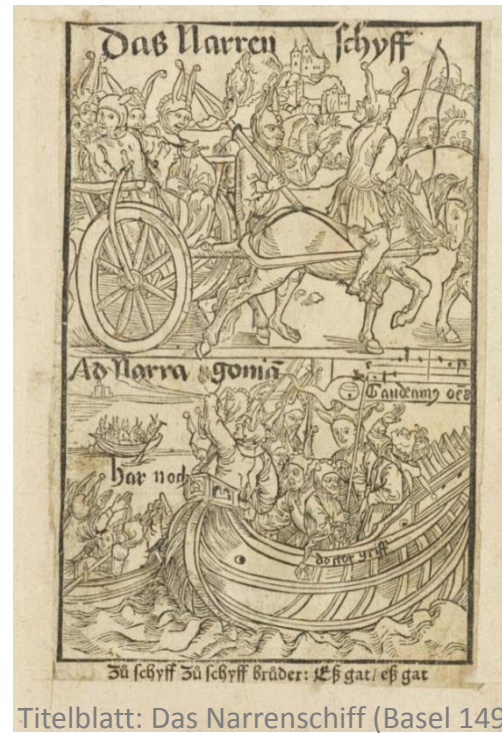 Das Narren schyff
Ad Narra goniā
Gaudeamus oēs
har noch
doctor griff
Zů schyff Zů schyff brůder: Eß gat / eß gat
Titelblatt: Das Narrenschiff (Basel 149